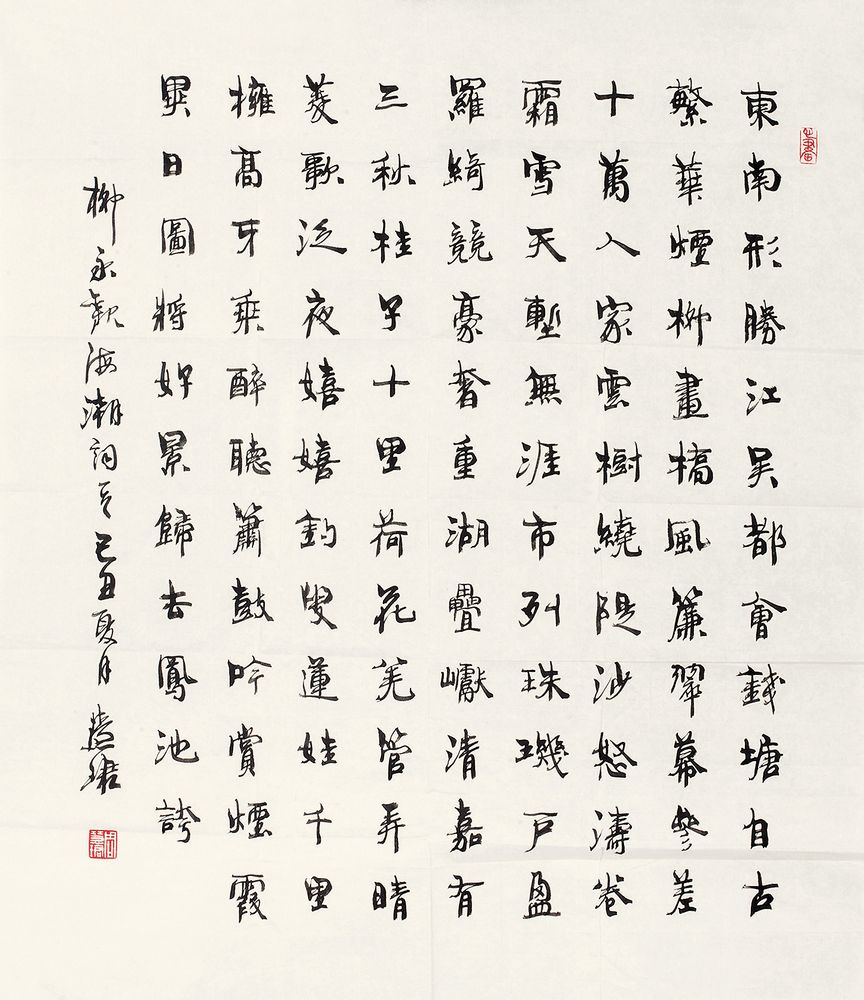 東南形勝江吴都會錢塘自古
繁華煙柳畫橋風簾翠幕參差
十萬人家雲樹繞隄沙怒濤卷
霜雪天塹無涯市列珠璣戶盈
羅綺競豪奢重湖疊巘清嘉有
三秋桂子十里荷花羌管弄晴
菱歌泛夜嬉嬉釣叟蓮娃千里
擁高牙乘醉聽簫鼓吟賞煙霞
異日圖將好景歸去鳳池誇
柳永觀海潮詞一首己丑夏月